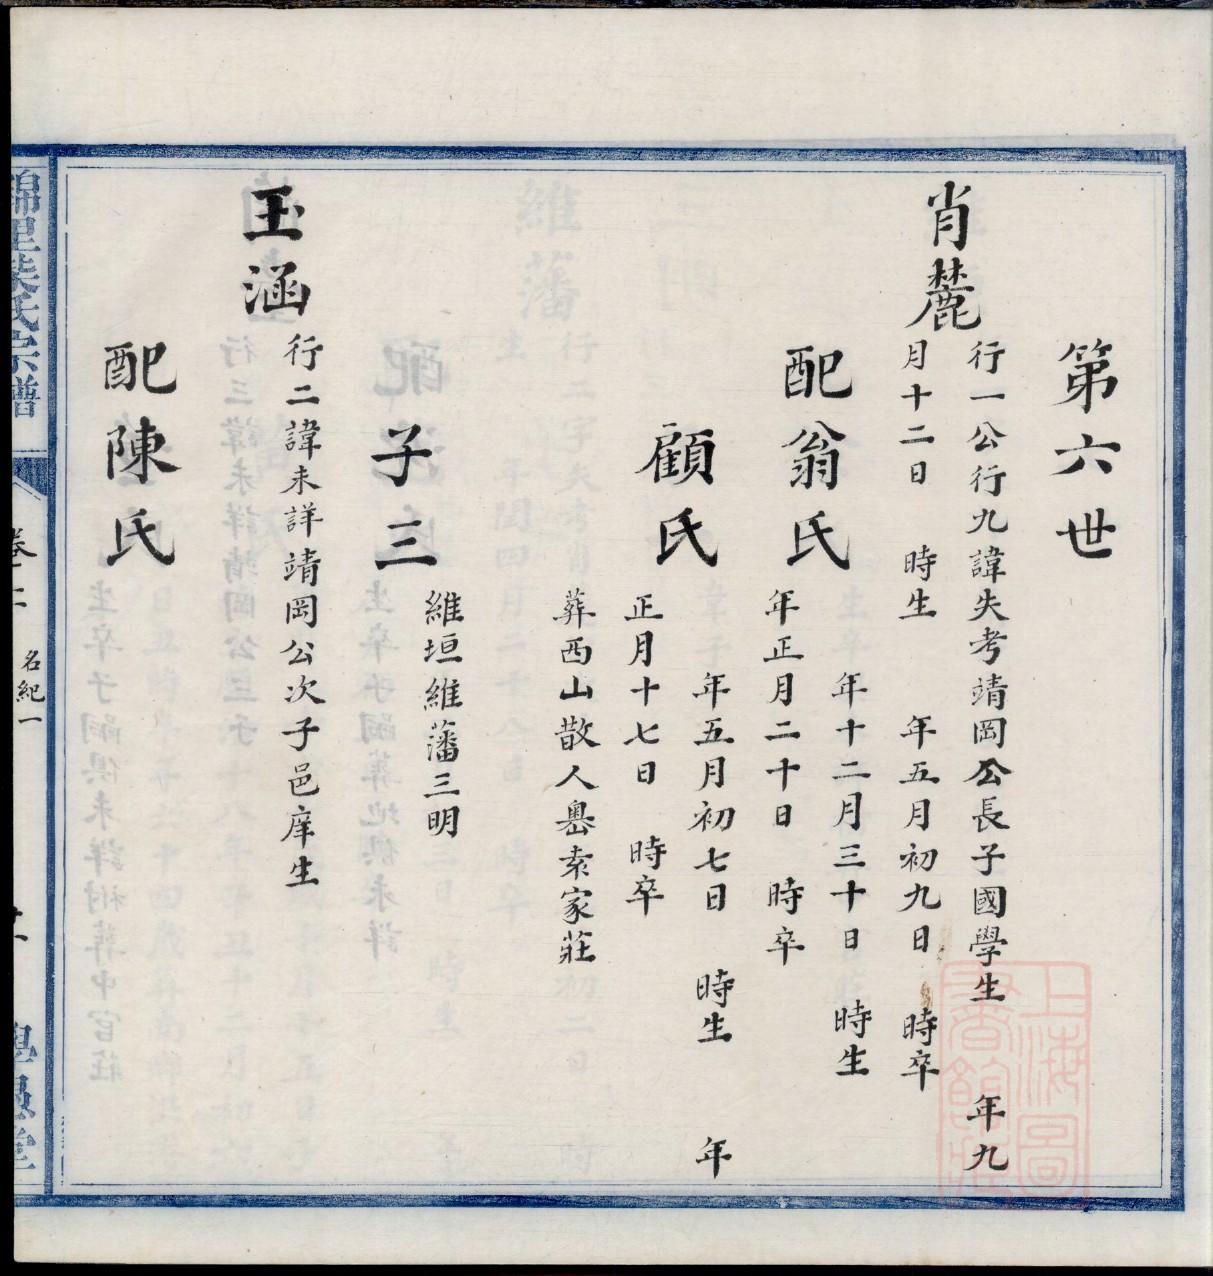 第六世
肖麓
行一公行九諱失考靖岡公長子國學生 年九
月十二日 時生 年五月初九日 時卒
配翁氏
年十二月三十日 時生
年正月二十日 時卒
顧氏
年五月初七日 時生 年
正月十七日 時卒
葬西山散人嶴索家莊
子三
維垣維藩三明
玉涵
行二諱未詳靖岡公次子邑庠生
配陳氏
氏宗譜
卷二
名紀一
上海圖書館藏